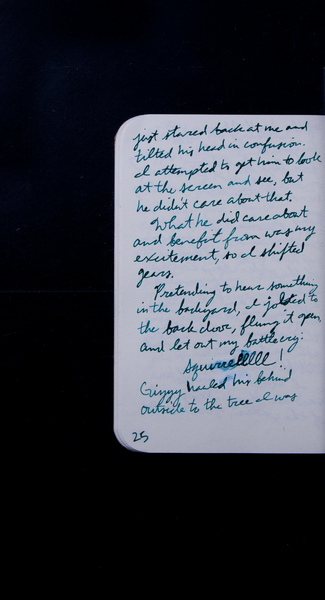 just stared back at me and
tilted his head in confusion.
I attempted to get him to look
at the screen and see, but
he didn't care about that.
What he did care about
and benefit from was my
excitement, so I shifted
gears.
Pretending to hear something
in the backyard, I jolted to
the back door, flung it open,
and let out my battle cry:
Squirrellllll!
hauled his behind
outside to the tree I was
25